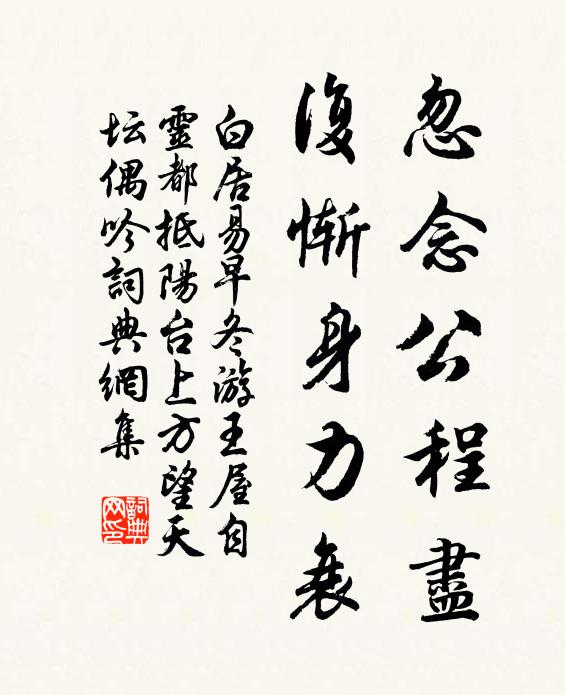 忽念公程盡
復慚身力衰
白居易早冬游王屋自
靈都抵陽台上方望天
坛偶吟詞典網集
詞典
网印